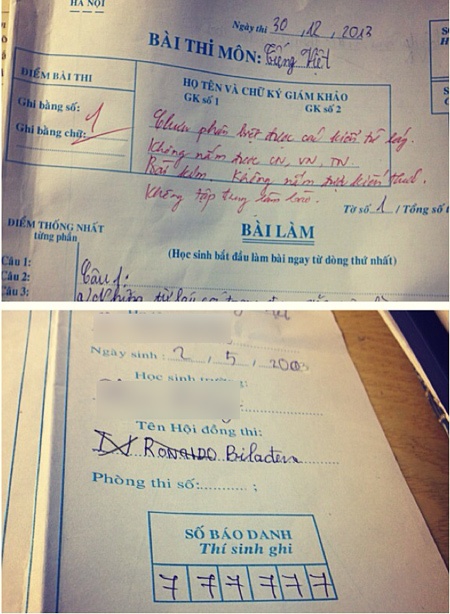 HÀ NỘI
Ngày thi 30, 12, 2013
BÀI THI MÔN: Tiếng Việt
ĐIỂM BÀI THI
HỌ TÊN VÀ CHỮ KÝ GIÁM KHẢO
GK số 1 GK số 2
Ghi bằng số: 1
Ghi bằng chữ:
Chưa phân biệt được các kiểu từ láy.
Không nắm được CN, VN, TN.
Bài kém. Không nắm được kiến thức.
Không tập trung làm bài.
Tờ số 1 / Tổng số t
BÀI LÀM
ĐIỂM THỐNG NHẤT
từng phần
(Học sinh bắt đầu làm bài ngay từ dòng thứ nhất)
Câu 1:
Câu 2:
Câu 3:
Câu 1:
Ngày sinh: 2, 5, 2003
Học sinh trường:
Tên Hội đồng thi:
RONALDO Biladen
Phòng thi số:..........;
SỐ BÁO DANH
Thí sinh ghi
7 7 7 7 7 7